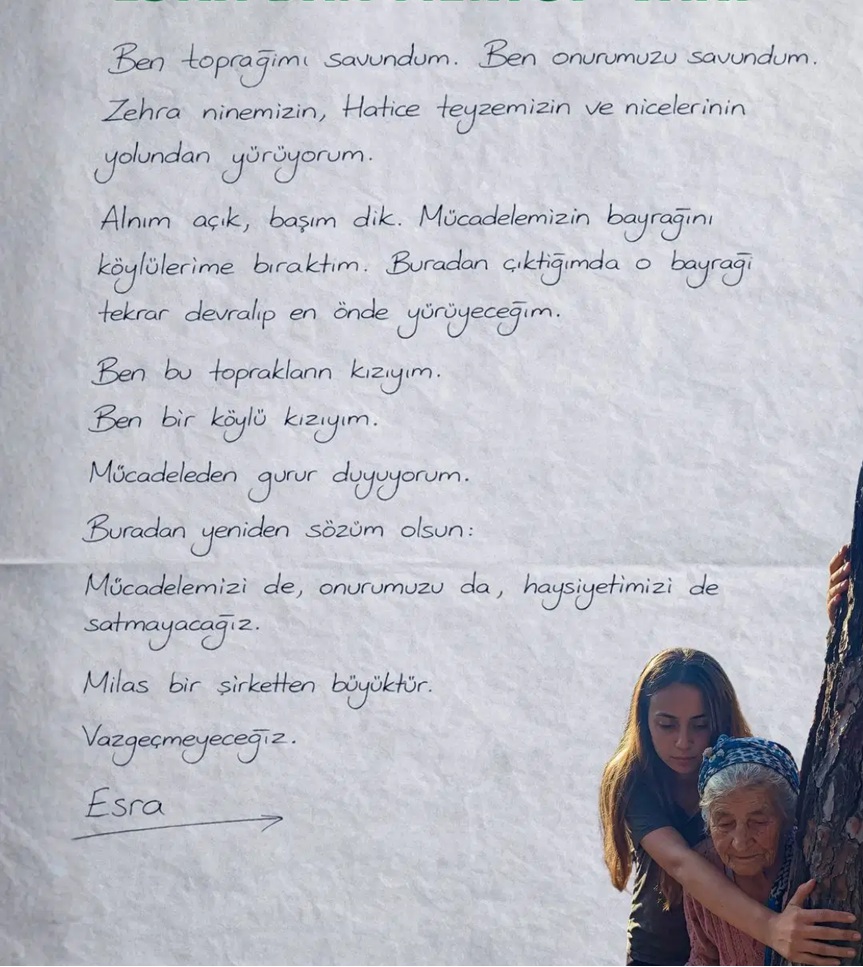 Ben toprağımı savundum. Ben onurumuzu savundum.
Zehra ninemizin, Hatice teyzemizin ve nicelerinin
yolundan yürüyorum.
Alnım açık, başım dik. Mücadelemizin bayrağını
köylülerime bıraktım. Buradan çıktığımda o bayraği
tekrar devralıp en önde yürüyeceğim.
Ben bu toprakların kızıyım.
Ben bir köylü kızıyım.
Mücadeleden gurur duyuyorum.
Buradan yeniden sözüm olsun:
Mücadelemizi de, onurumuzu da, haysiyetimizi de
satmayacağız.
Milas bir şirketten büyüktür.
Vazgeçmeyeceğiz.
Esra